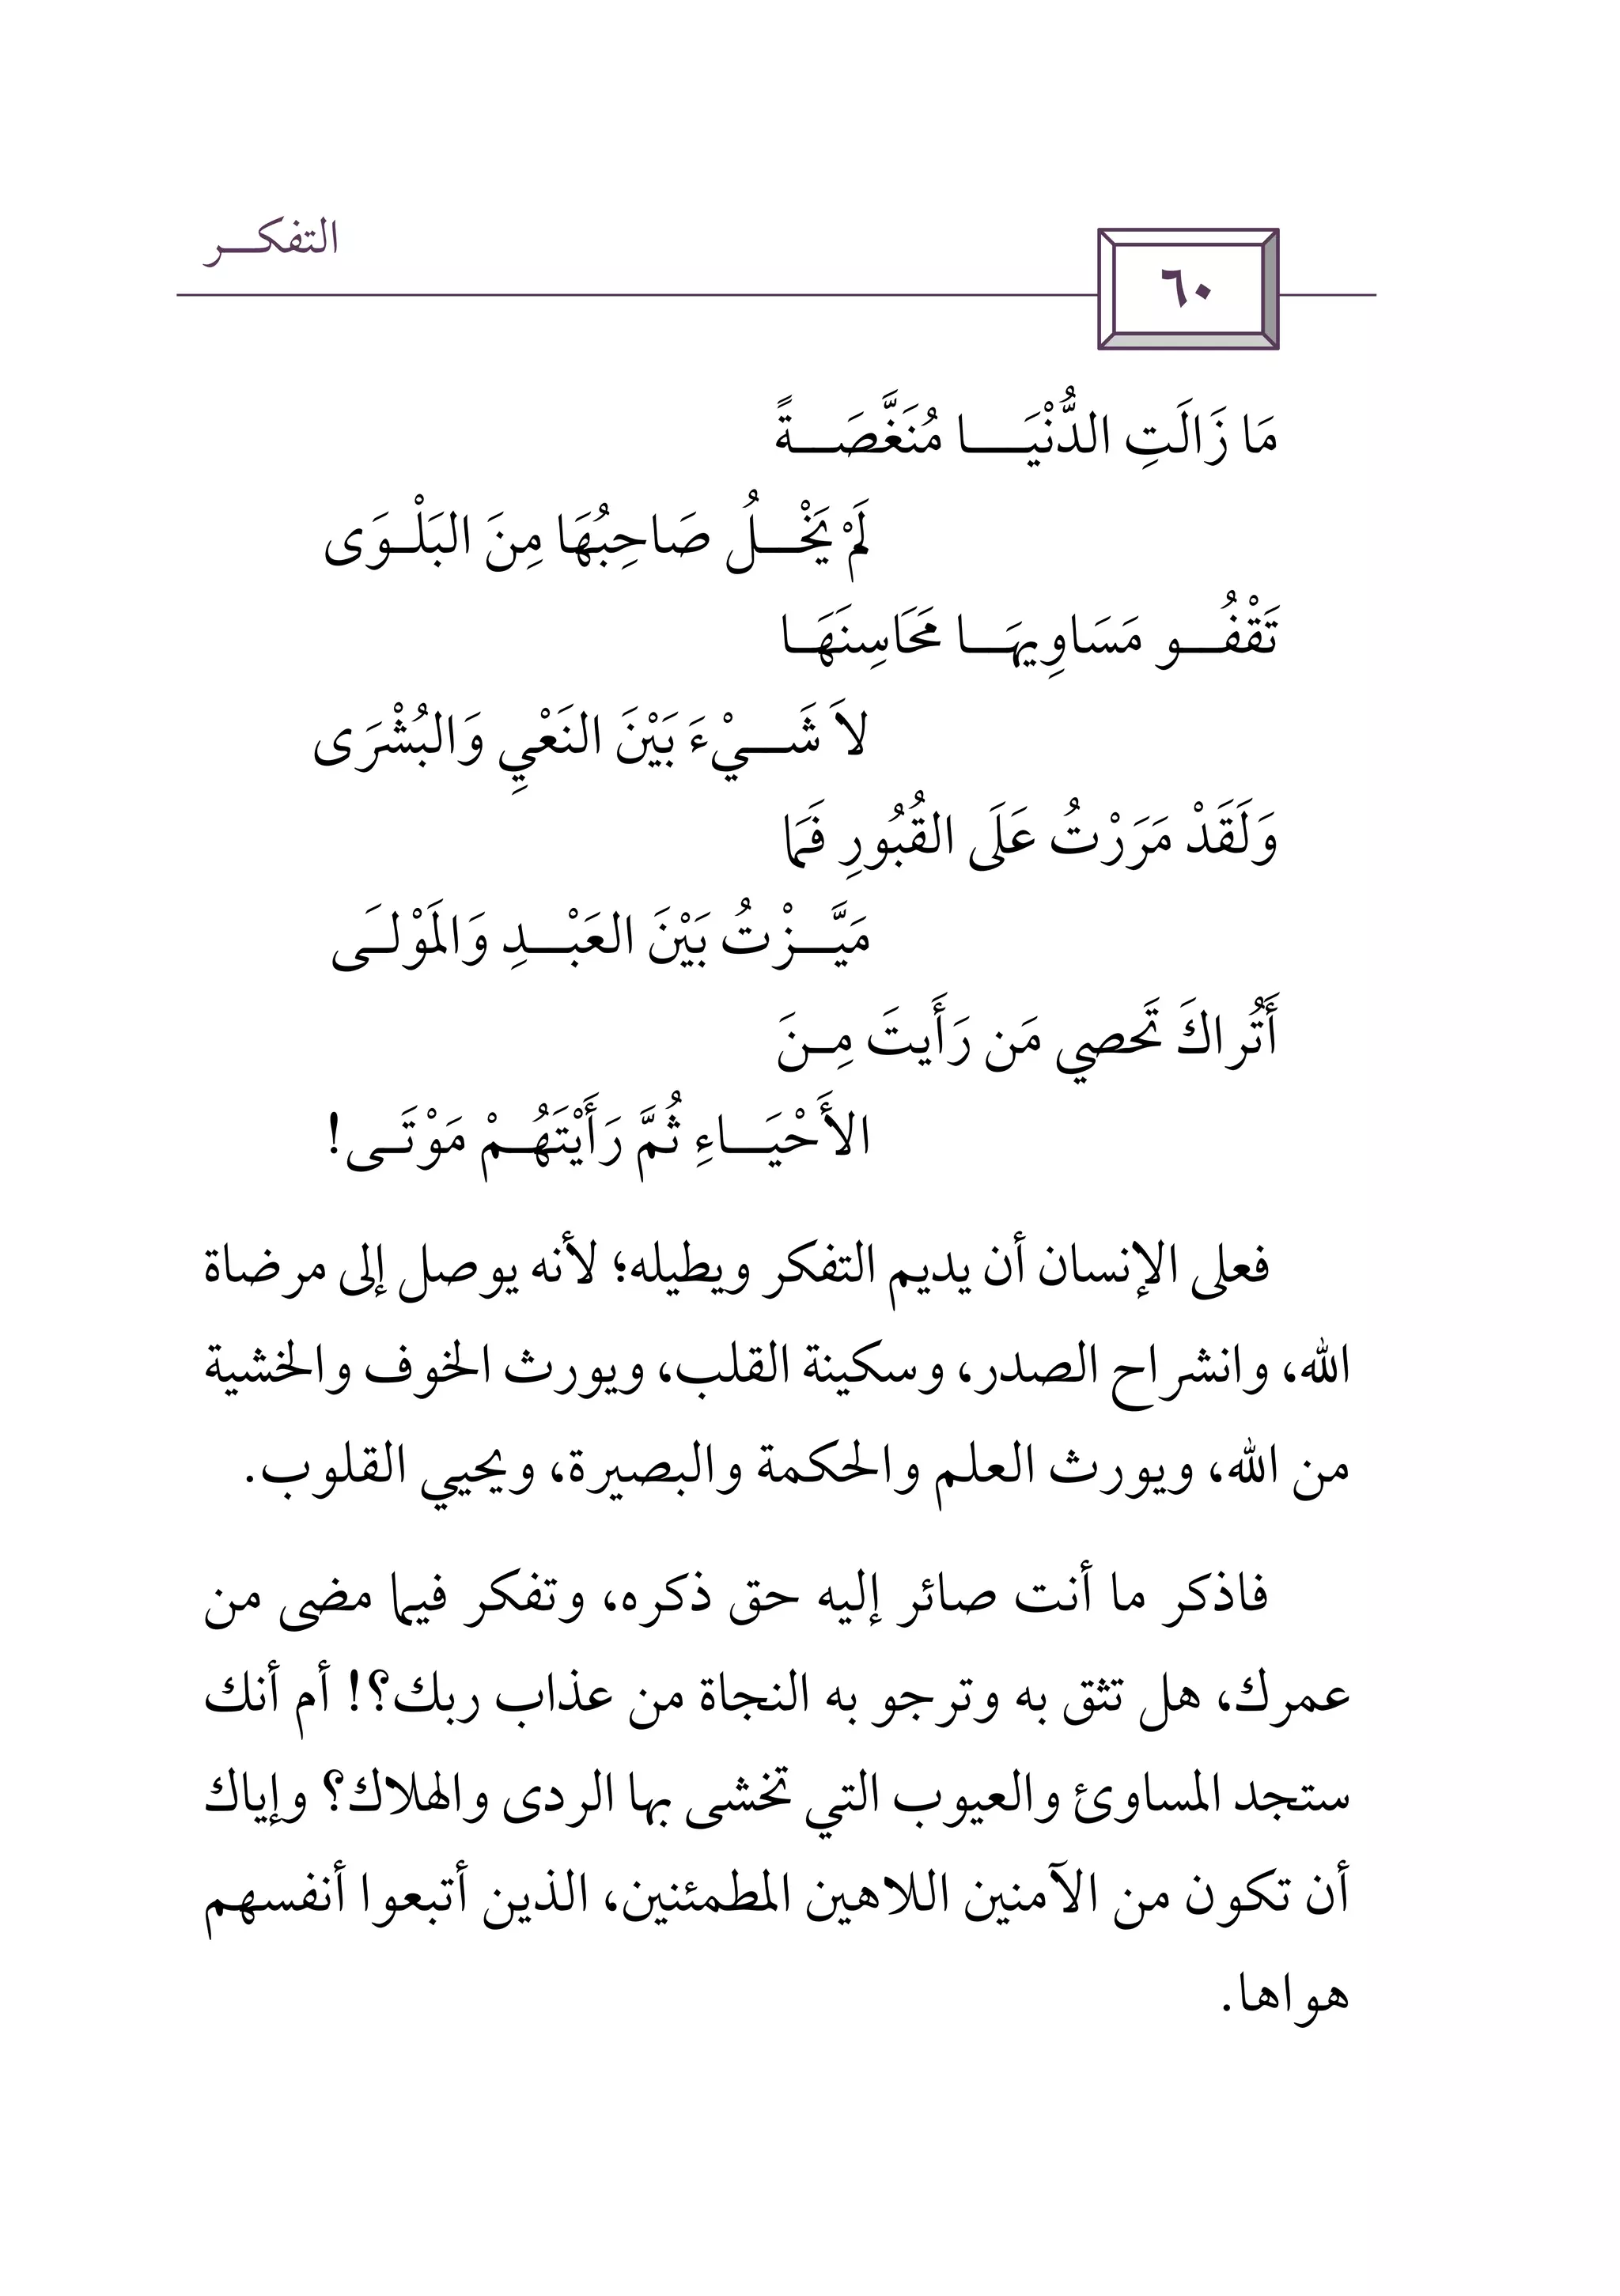 التفكـــر
٦٠
مَا زَالَتِ الدُّنْيَـــا مُنَغَّصَـــةً
لَمْ يَخْـــلُ صَاحِبُهَا مِنَ البَلْـوَى
تَقْفُـــو مَسَاوِيهَـــا مَحَاسِنَهَـا
لاَ شَـــيْءَ بَيْنَ النَعْيِ وَالبُشْرَى
وَلَقَدْ مَرَرْتُ عَلَى القُبُورِ فَمَا
مَيَّـــزْتُ بَيْنَ العَبْـــدِ وَالمَوْلَـى
أَتُراكَ تَحصي مَن رَأَيتَ مِـنَ
الأَحْيَـــاءِ ثُمَّ رَأَيْتَهُـمْ مَوْتَـى!
فعلى الإنسان أن يديم التفكر ويطيله؛ لأنه يوصل إلى مرضاة
الله، وانشراح الصدر، وسكينة القلب، ويورث الخوف والخشية
من الله، ويورث العلم والحكمة والبصيرة، ويحيي القلوب.
فاذكر ما أنت صائر إليه حق ذكره، وتفكر فيما مضى من
عمرك، هل تثق به وترجو به النجاة من عذاب ربك؟! أم أنك
ستجد المساوئ والعيوب التي تخشى بها الردى والهلاك؟ وإياك
أن تكون من الآمنين اللاهين المطمئنين، الذين أتبعوا أنفسهم
هواها.